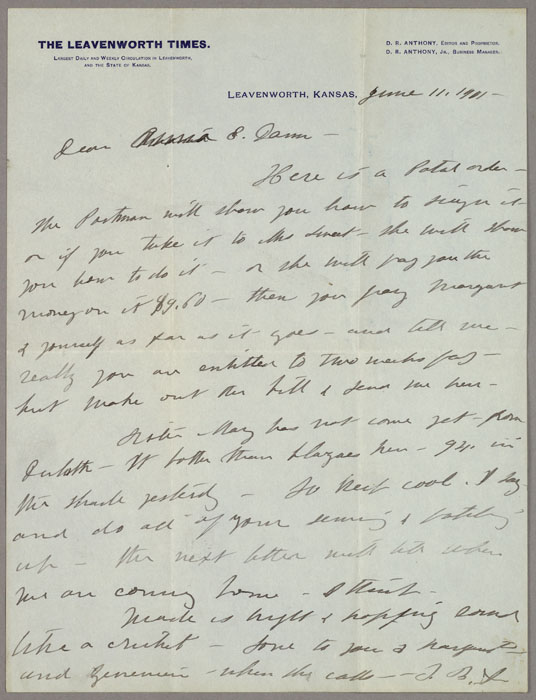 THE LEAVENWORTH TIMES.
LARGEST DAILY AND WEEKLY CIRCULATION IN LEAVENWORTH,
AND THE STATE OF KANSAS.
D. R. ANTHONY, EDITOR AND PROPRIETOR.
D. R. ANTHONY, JR., BUSINESS MANAGER.
LEAVENWORTH, KANSAS, June 11. 1901 -
Dear E. Dann -
Here is a Postal order -
the Postman will show you how to sign it
or if you take it to Mrs Sweet - she will show
you how to do it - or she will pay you the
money on it $9.60 - then you pay Margaret
& yourself as far as it goes - and tell me -
really you are entitled to two weeks pay -
but make out the bill & send me here -
Sister Mary has not come yet - from
Duluth - It hotter than blazes here - 94. in
the shade yesterday - So keep cool. I say
and do all of your sewing &
up - the next letter will tell when
we are coming home - I think -
Maude is bright & hopping round
like a cricket - love to you & Margaret
and Genevieve - when she calls - S. B. A